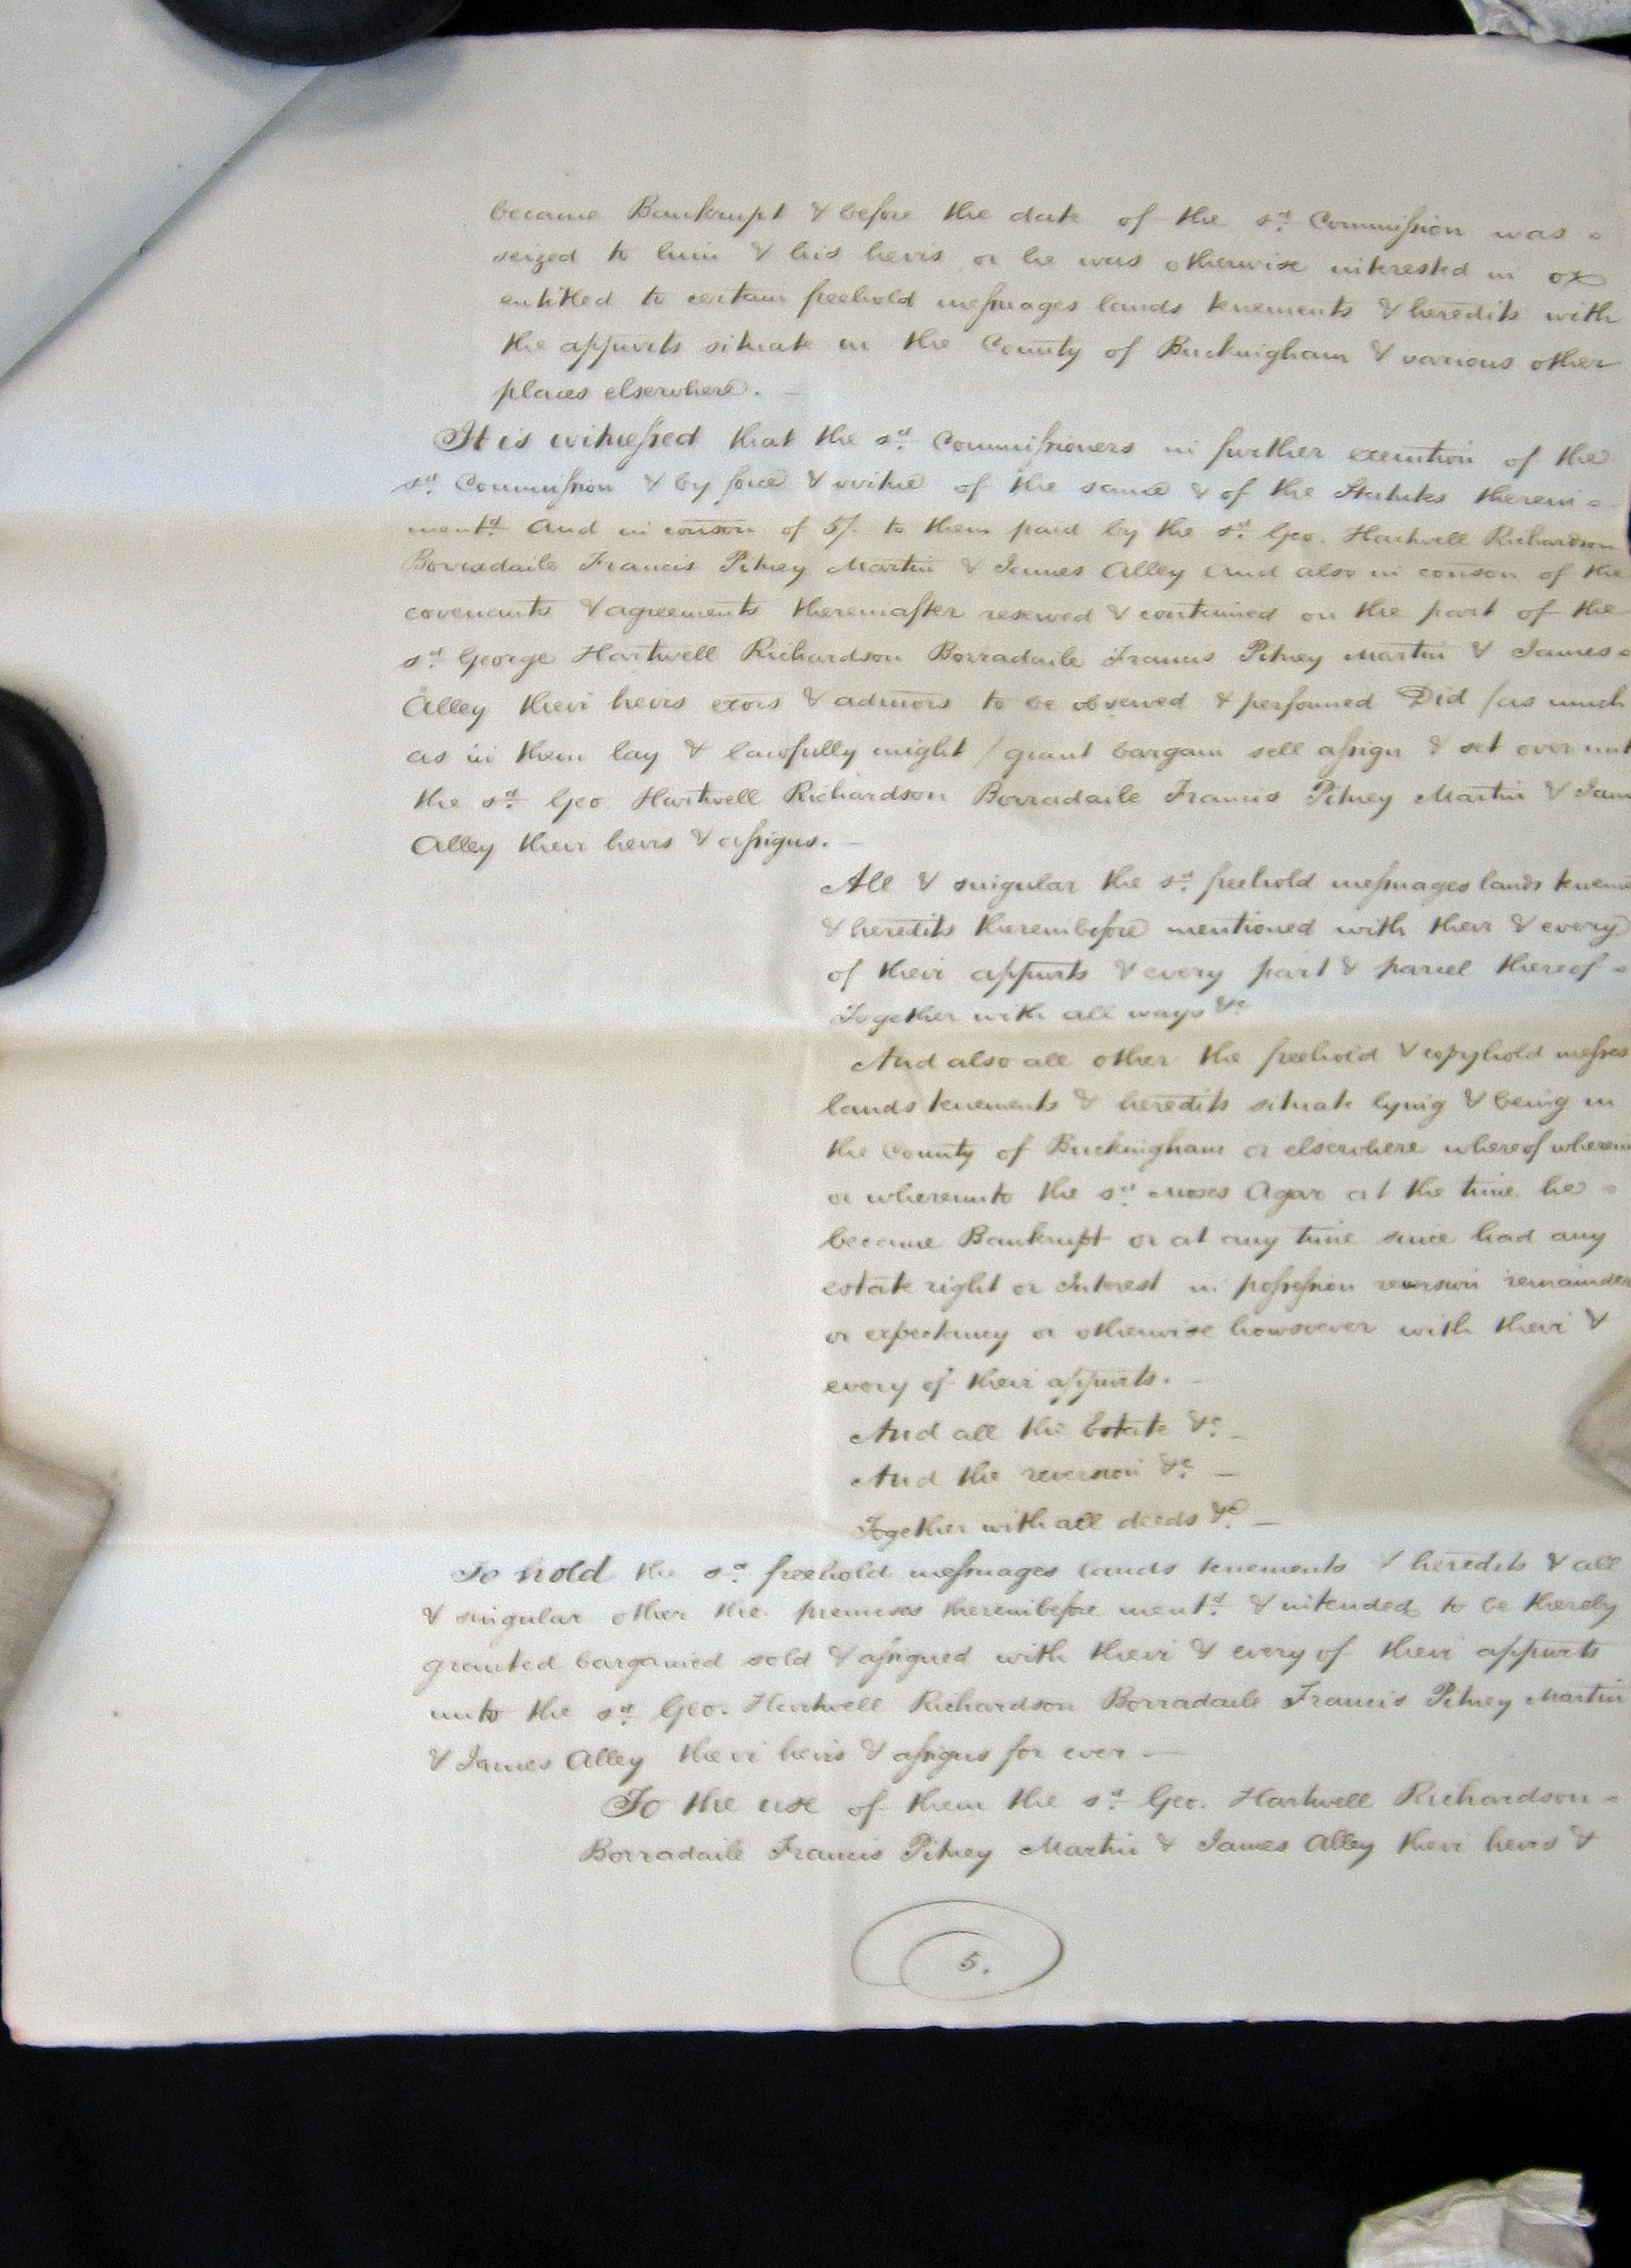 became Bankrupt & before the date of the sd. Commission was
seized to him & his heirs or he was otherwise interested in or
entitled to certain freehold messuages lands tenements & heredits with
the appurts situate in the County of Buckingham & various other
places elsewhere. —
It is witnessed that the sd. Commissioners in further execution of the
sd. Commission & by force & virtue of the same & of the Statutes therein
mentd. And in conson of 5/. to them paid by the sd. Geo. Hartwell Richardson
Borradaile Francis Pitney Martin & James Alley And also in conson of the
covenants & agreements thereinafter reserved & contained on the part of the
sd. George Hartwell Richardson Borradaile Francis Pitney Martin & James
Alley their heirs exors & admors to be observed & performed Did /as much
as in them lay & lawfully might / grant bargain sell assign & set over unt
the sd. Geo. Hartwell Richardson Borradaile Francis Pitney Martin & Jam
Alley their heirs & assigns. —
All & singular the sd. freehold messuages lands teneme
& heredits thereinbefore mentioned with their & every
of their appurts & every part & parcel thereof
Together with all ways &c.
And also all other the freehold & copyhold messes
lands tenements & heredits situate lying & being in
the County of Buckingham or elsewhere whereof wherein
or whereunto the sd. Moses Agar at the time he
became Bankrupt or at any time since had any
estate right or Interest in possession reversion remainder
or expectancy or otherwise howsoever with their &
every of their appurts. —
And all the Estate &c. —
And the reversion &c. —
Together with all deeds &c. —
To hold the sd. freehold messuages lands tenements & heredits & all
& singular other the premises thereinbefore mentd. & intended to be thereby
granted bargained sold & assigned with their & every of their appurts
unto the sd. Geo. Hartwell Richardson Borradaile Francis Pitney Martin
& James Alley their heirs & assigns for ever —
To the use of them the sd. Geo. Hartwell Richardson
Borradaile Francis Pitney Martin & James Alley their heirs &
5.